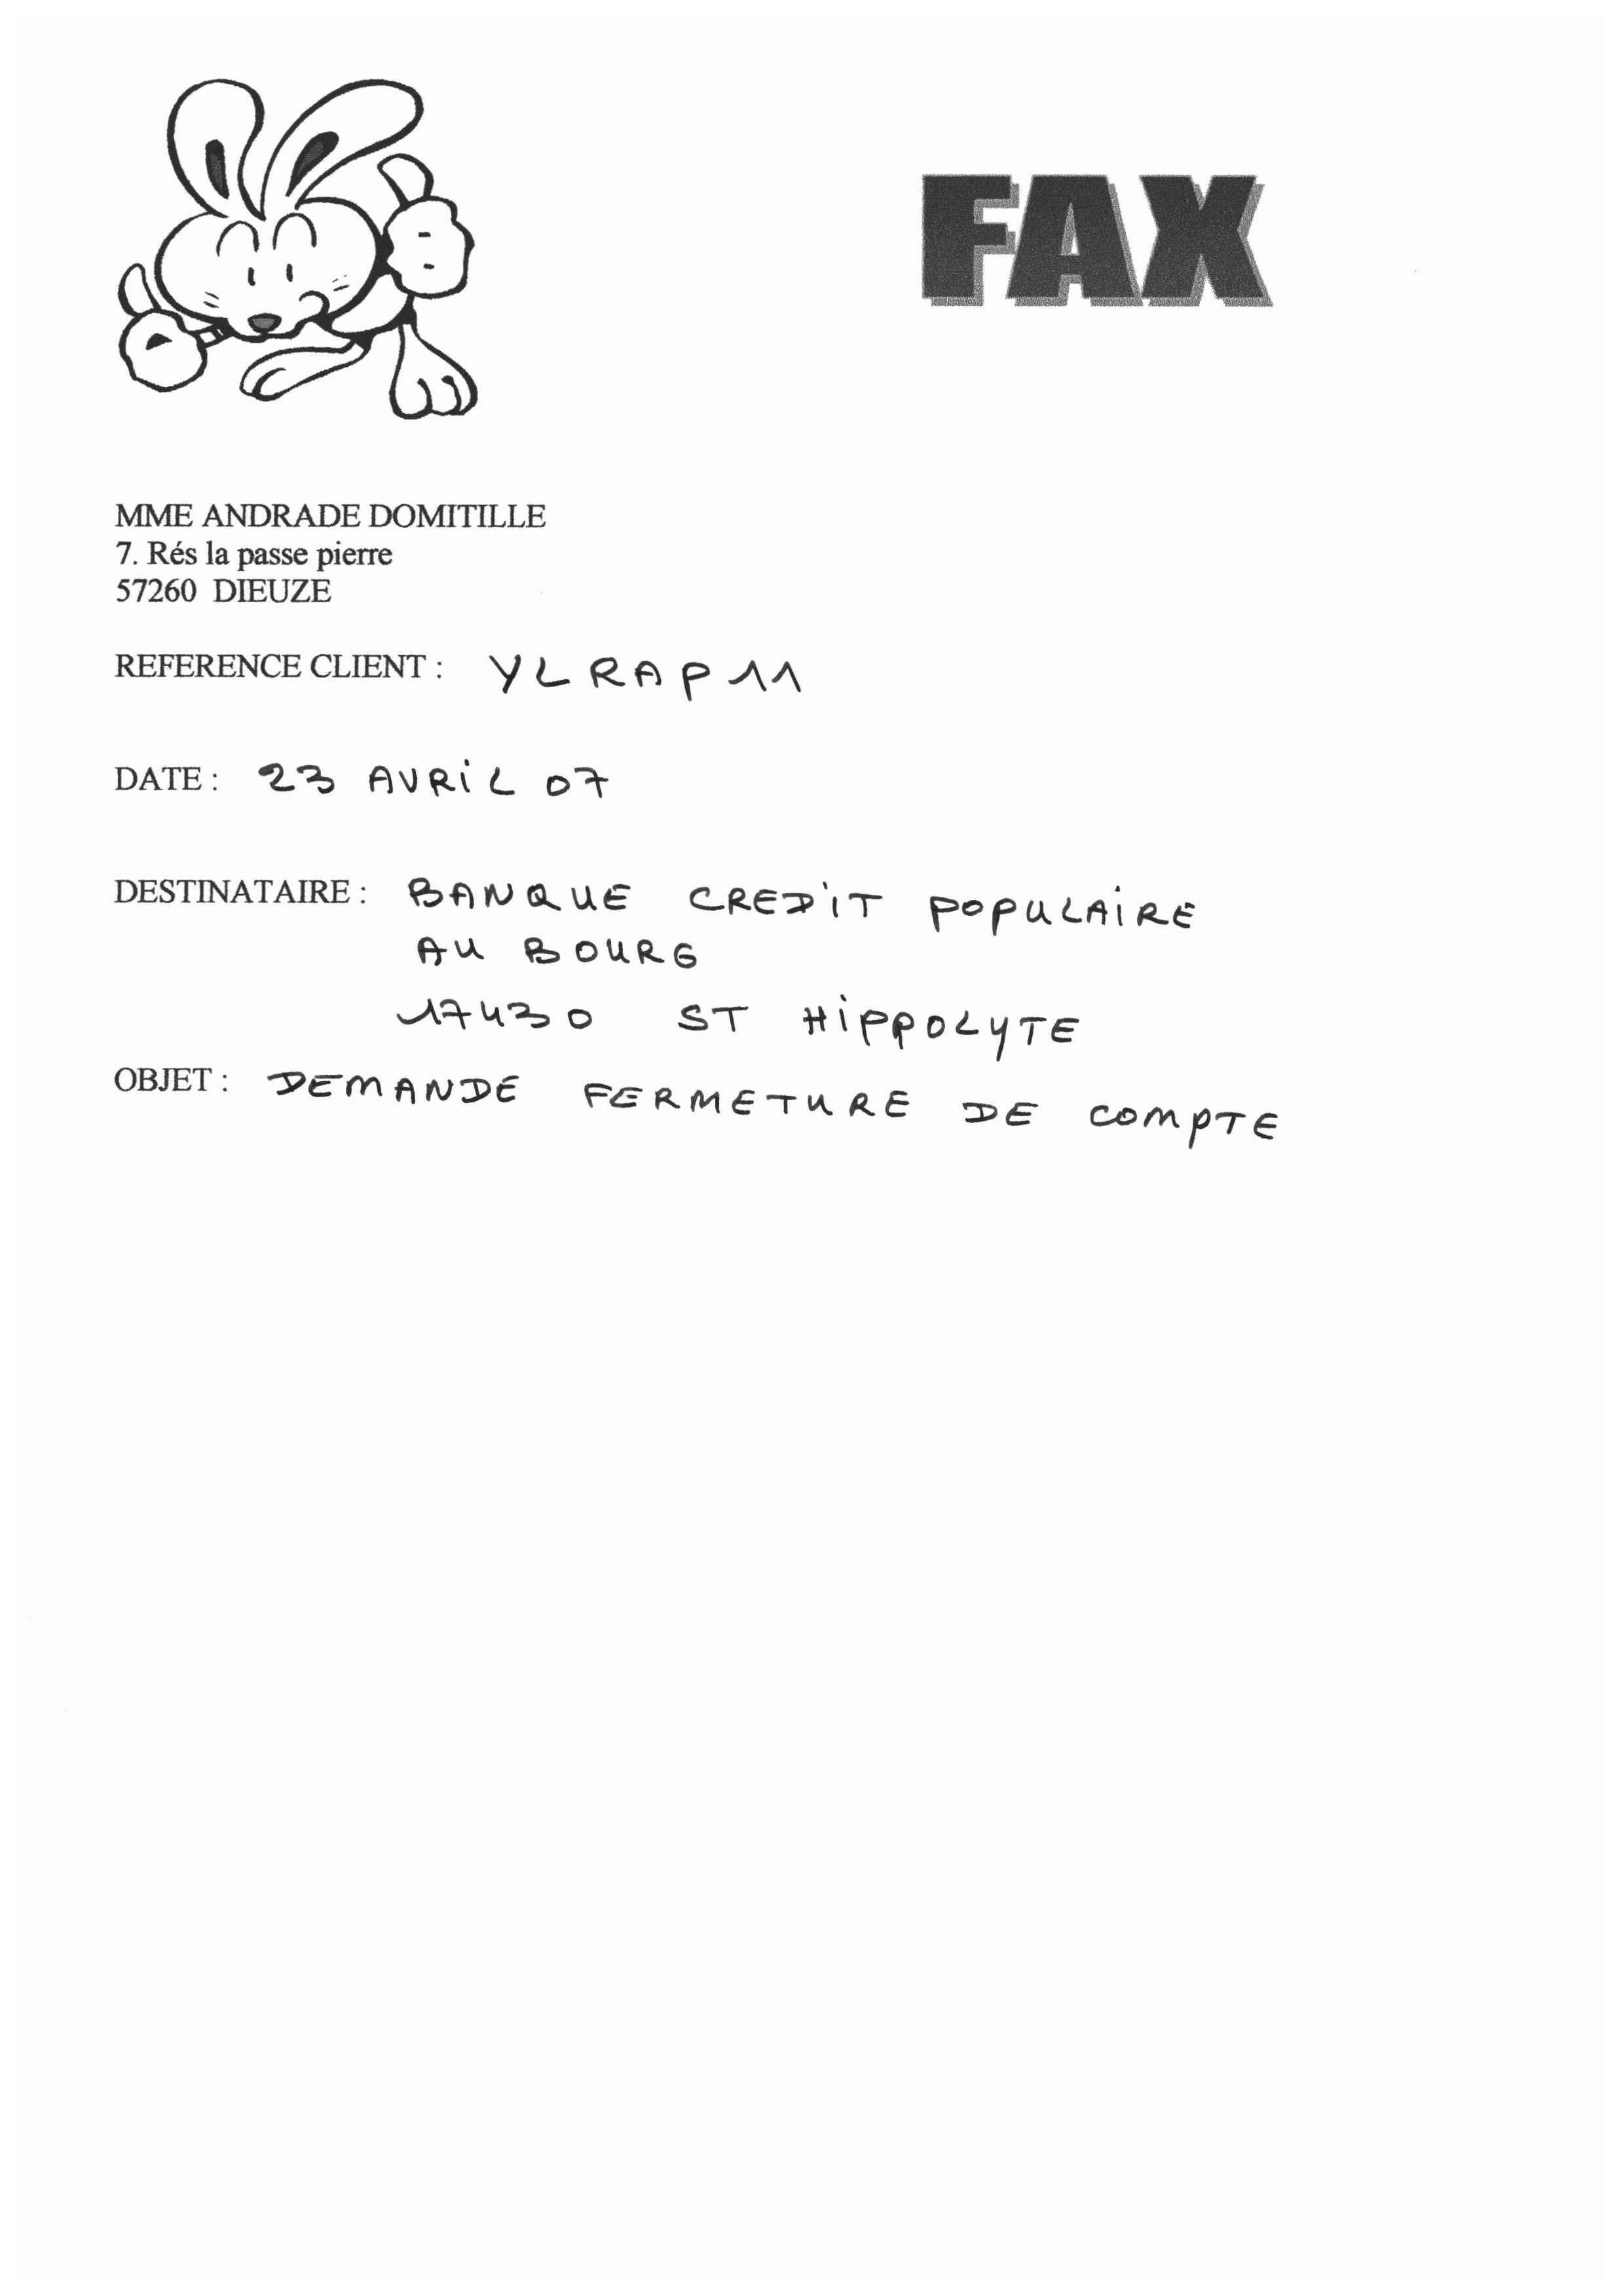 FAX
MME ANDRADE DOMITILLE
7. Rés la passe pierre
57260 DIEUZE
REFERENCE CLIENT : YLRAP11
DATE : 23 AVRiL 07
DESTINATAIRE : BANQUE CREDiT POPULAiRE
AU BOURG
17430 ST HiPPOLYTE
OBJET : DEMANDE FERMETURE DE COMPTE